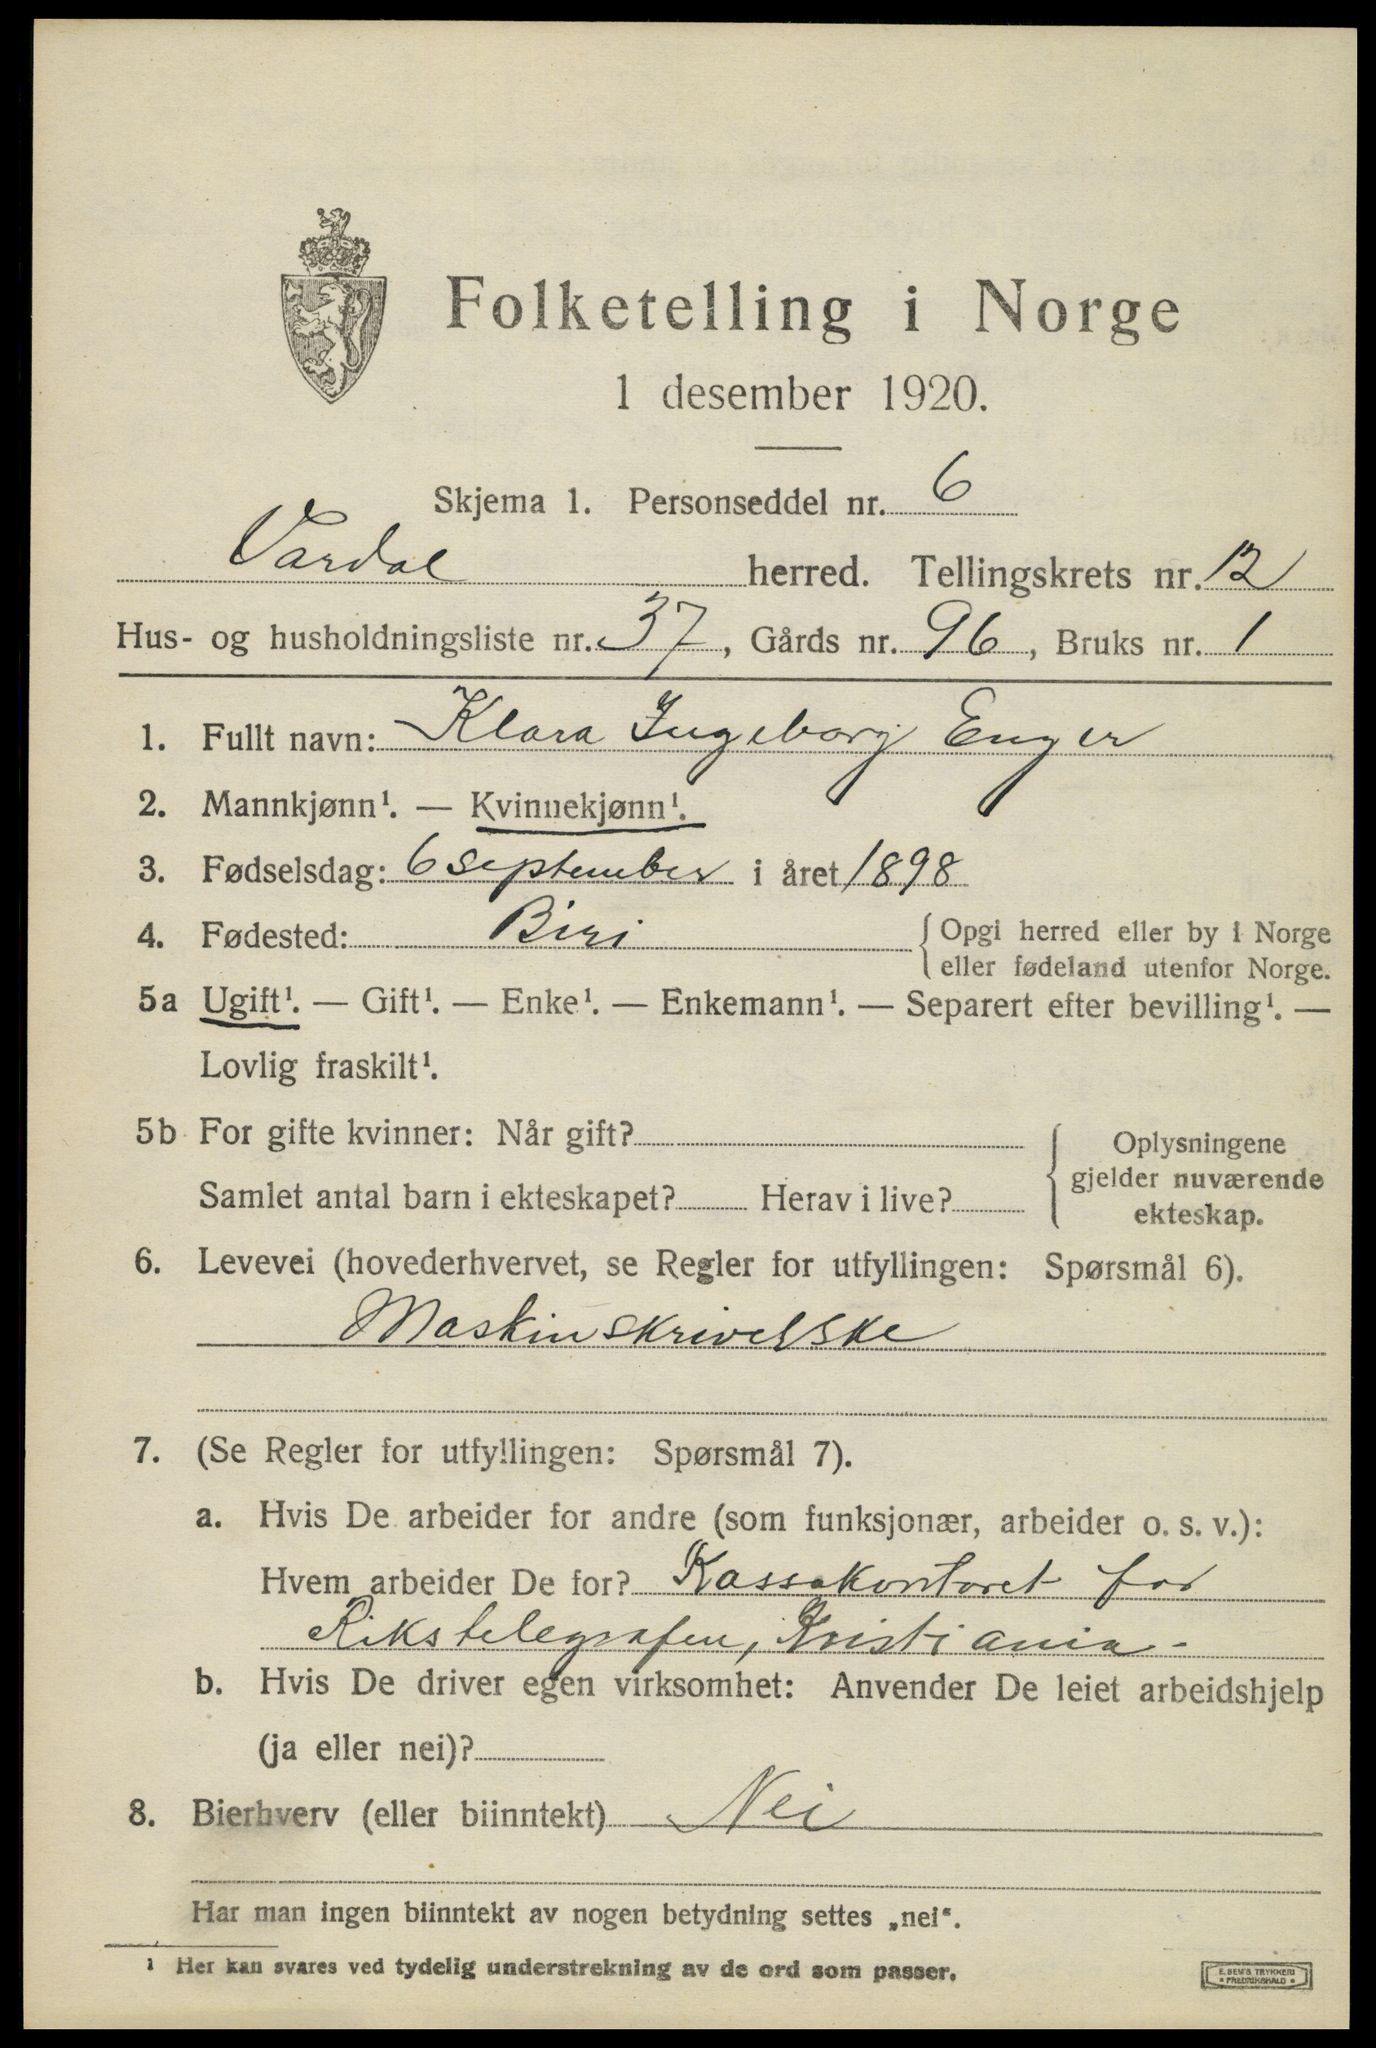 Folketelling i Norge
1 desember 1920.
Skjema 1. Personseddel nr. 6
Vardal herred. Tellingskrets nr. 12
Hus- og husholdningsliste nr. 37, Gårds nr. 96, Bruks nr. 1
1. Fullt navn: Klara Ingeborg Enger
2. Mannkjønn¹. — Kvinnekjønn¹.
3. Fødselsdag: 6 september i året 1898
4. Fødested: Biri
Opgi herred eller by i Norge
eller fødeland utenfor Norge.
5a Ugift¹. — Gift¹. — Enke¹. — Enkemann¹. — Separert efter bevilling¹. —
Lovlig fraskilt¹.
5b For gifte kvinner: Når gift?
Samlet antal barn i ekteskapet? Herav i live?
Oplysningene
gjelder nuværende
ekteskap.
6. Levevei (hovederhvervet, se Regler for utfyllingen: Spørsmål 6).
Maskinskriverske
7. (Se Regler for utfyllingen: Spørsmål 7).
a. Hvis De arbeider for andre (som funksjonær, arbeider o. s. v.):
Hvem arbeider De for? Kassakontoret for
Rikstelegrafen, Kristiania-
b. Hvis De driver egen virksomhet: Anvender De leiet arbeidshjelp
(ja eller nei)?
8. Bierhverv (eller biinntekt) Nei
Har man ingen biinntekt av nogen betydning settes „nei“.
¹ Her kan svares ved tydelig understrekning av de ord som passer.
E. SEM'S TRYKKERI
FREDRIKSHALD